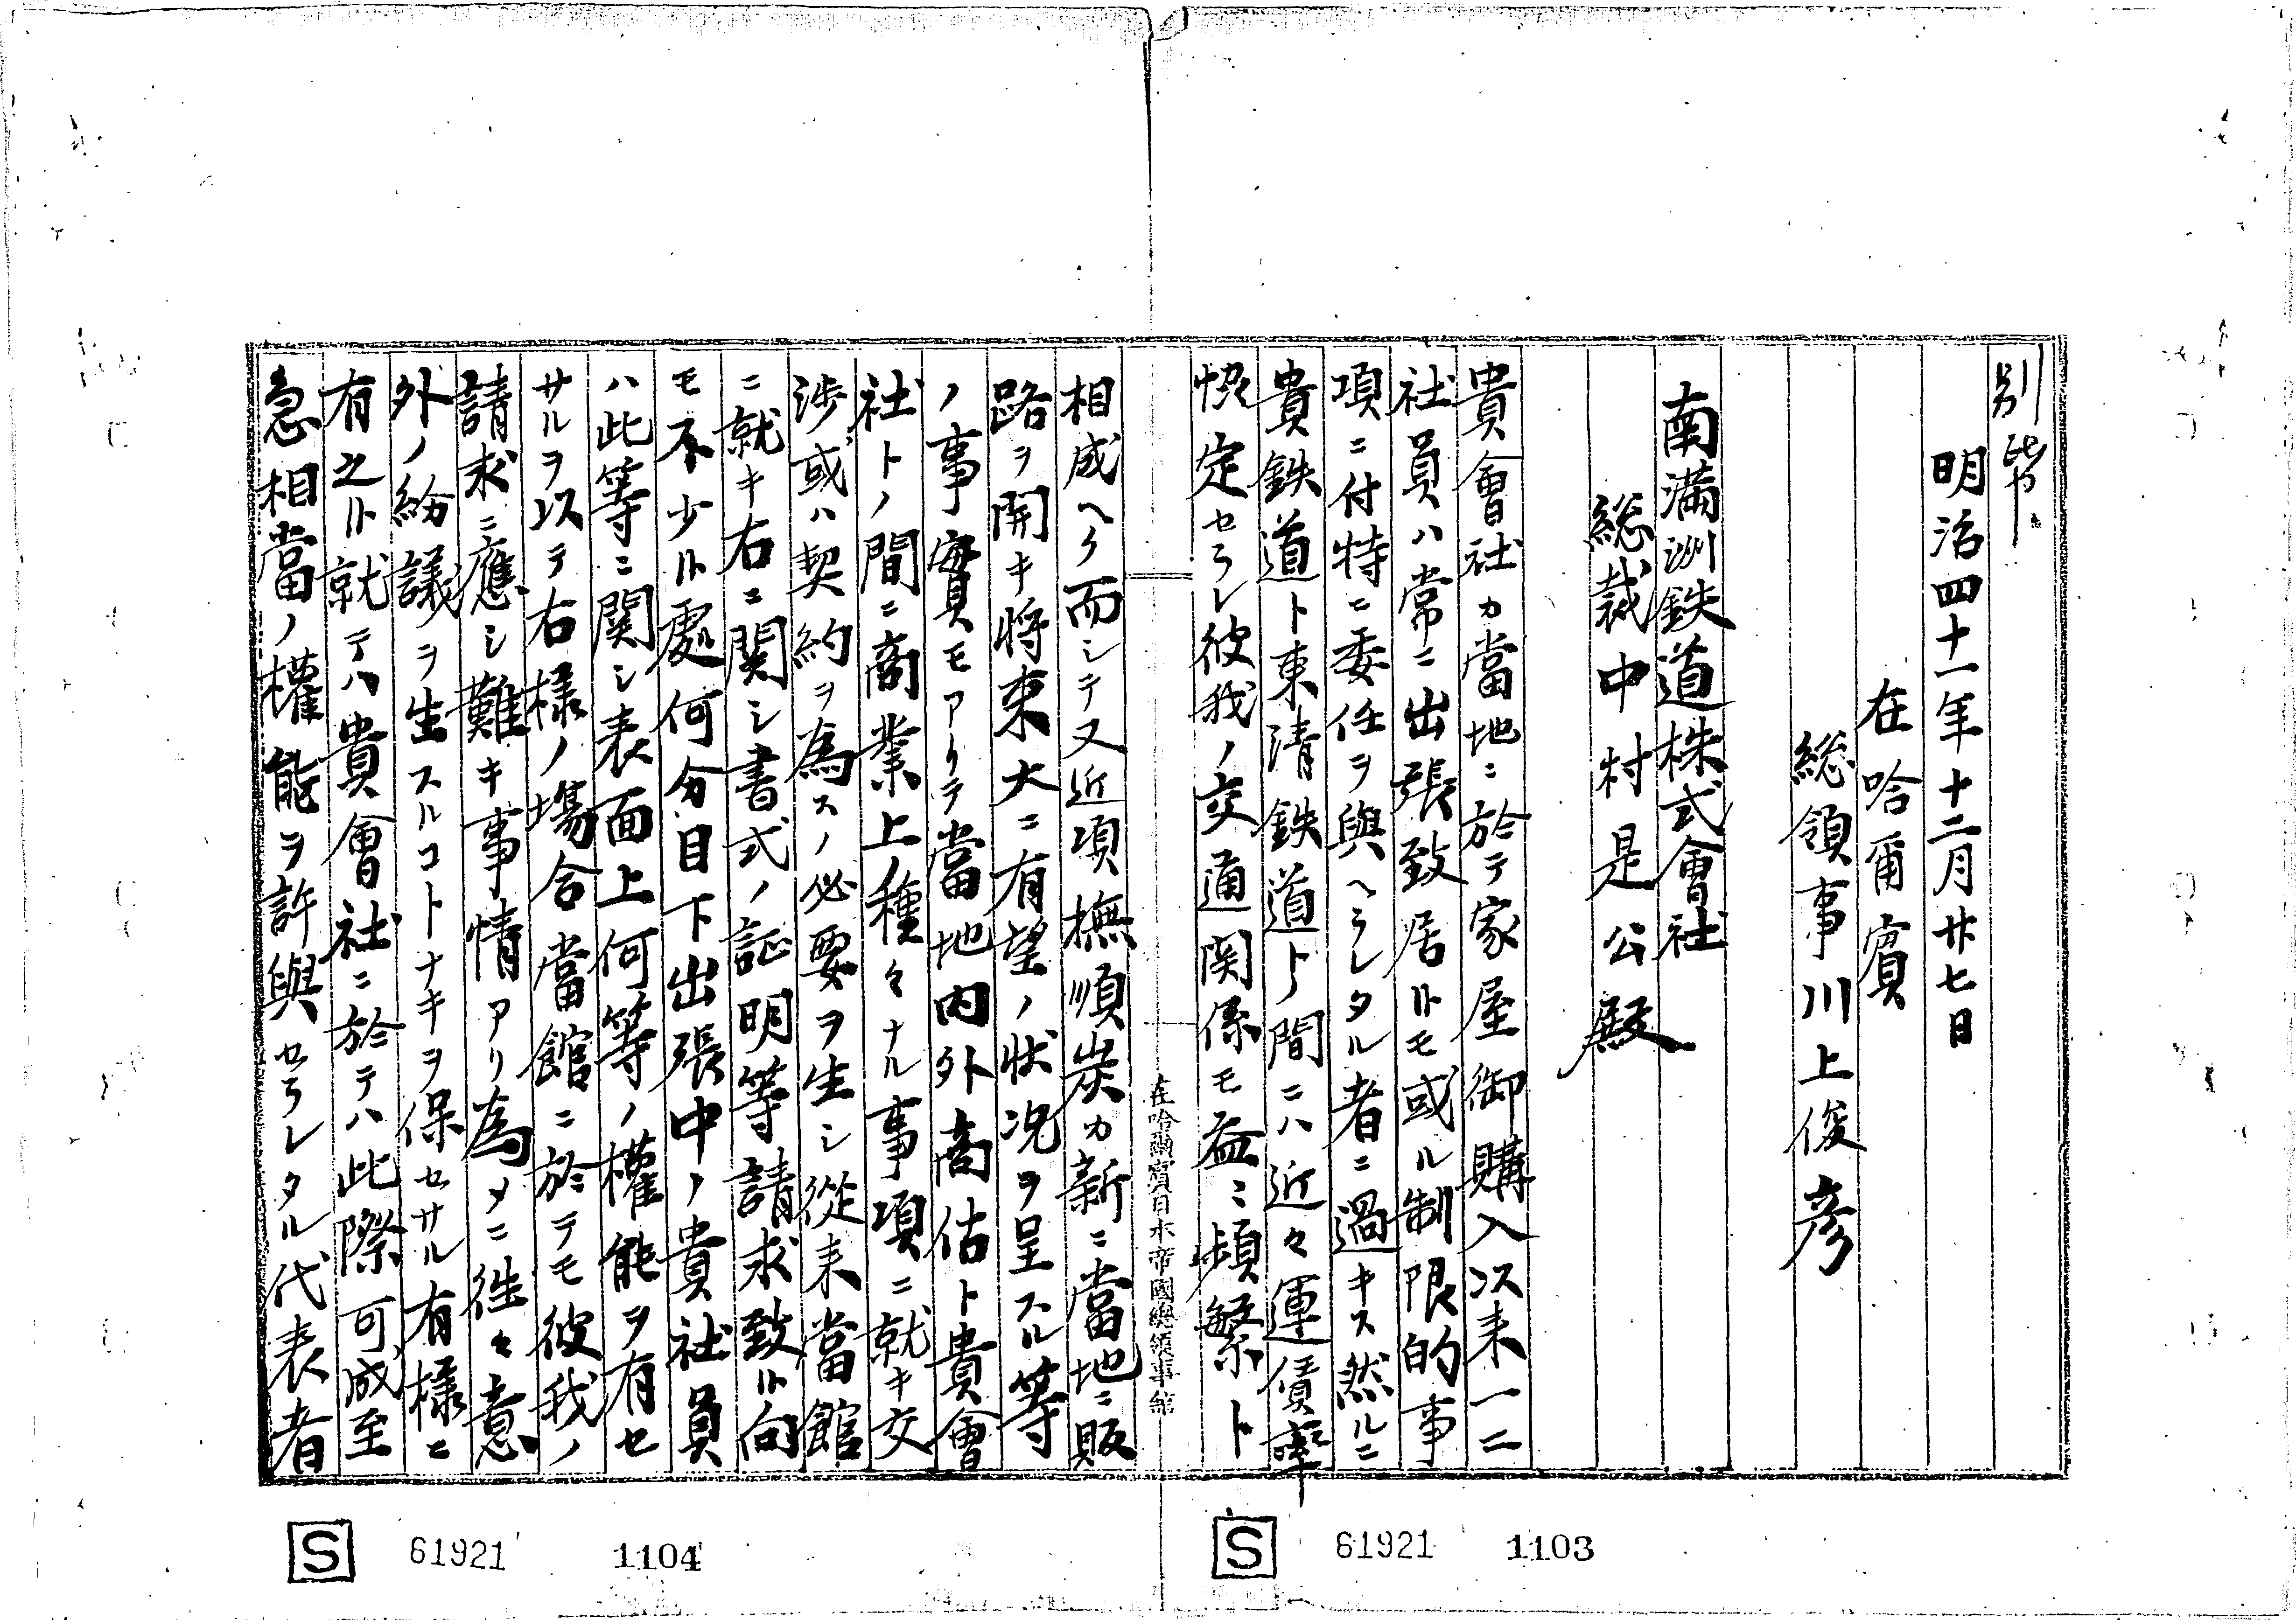 別紙
明治四十一年十二月廿七日
在哈爾賓
総領事川上俊彦
南満洲鉄道株式會社
総裁中村是公殿
貴會社カ當地ニ於テ家屋御購入以来一二
社員ハ常ニ出張致居候モ或ル制限的事
項ニ付特ニ委任ヲ與ヘラレタル者ニ過キス然ルニ
貴鉄道ト東清鉄道トノ間ニハ近々運賃率
協定セラレ彼我ノ交通関係モ益ニ頻繁ト
在哈爾賓日本帝國總領事館
相成ヘク而シテ又近項撫順炭カ新ニ當地ニ販
路ヲ開キ将来大ニ有望ノ状况ヲ呈スル等
ノ事實モアリテ當地内外商估ト貴會
社トノ間ニ商業上ノ種々ナル事項ニ就キ交
渉或ハ契約ヲ為スノ必要ヲ生シ從来當館
ニ就キ右ニ関シ書式ノ証明等請求致候向
モ不少候處何分目下出張中ノ貴社員
ハ此等ニ関シ表面上何等ノ權能ヲ有セ
サルヲ以テ右様ノ塲合當館ニ於テモ彼我ノ
請求ニ應シ難キ事情アリ為メニ往々意
外ノ紛議ヲ生スルコトナキヲ保セサル有様ニ
有之候就テハ貴會社ニ於テハ此際可成至
急相當ノ權能ヲ許與セラレタル代表者
S 61921 1103
S 61921 1104